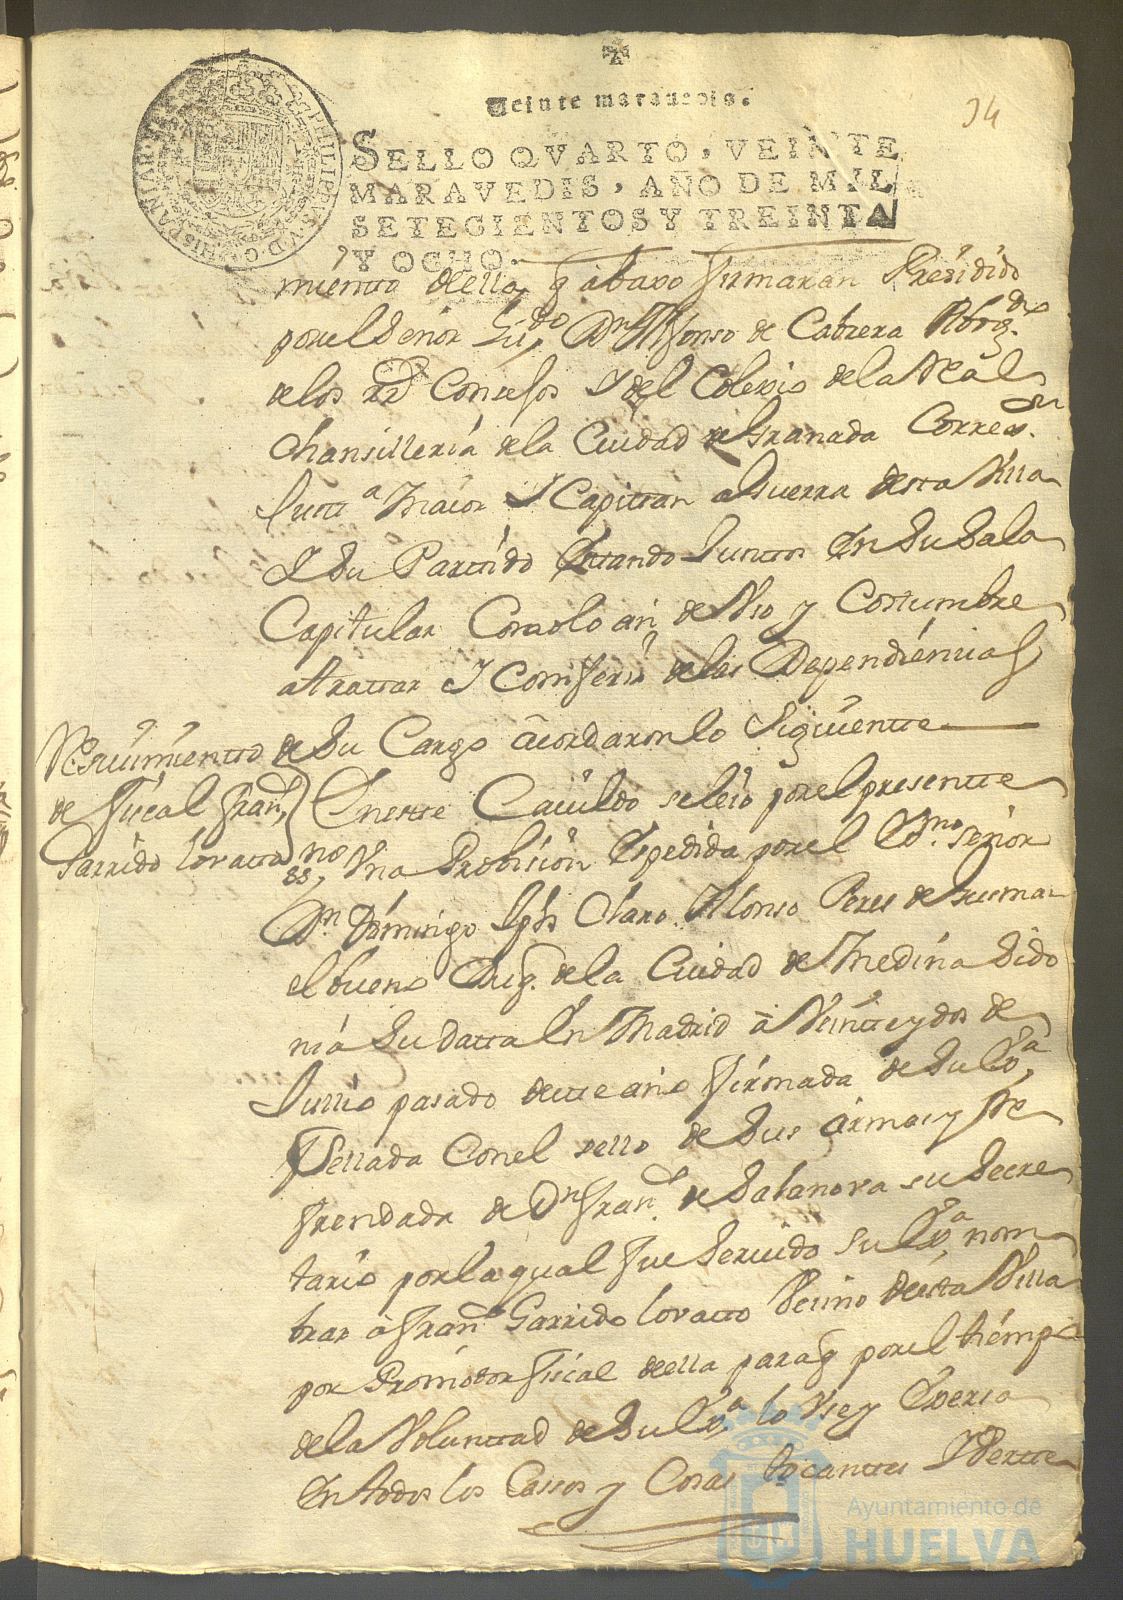 Veinte maravedis.
34
SELLO QVARTO, VEINTE
MARAVEDIS, AÑO DE MIL
SETECIENTOS Y TREINTA
Y OCHO.
PHILIPPVS V D G HISPANIAR
miento della q abaxo firmaran Presidido
por el Señor Lizdo Dn Alfonso de Cabrera
de los Rs Consejos Y del Colexio de la Real
Chansilleria de la Ciudad de Granada Corregor
Justa Maior Y Capittan a Guerra desta Villa
Y Su Partido Estando Juntos En Su Sala
Capitular Como lo an de Vso y Costumbre
a trattar Y Conferir de las Dependiencias
de Su Cargo acordaron lo Siguiente
Resivimiento
de Fiscal Franco
Garrido Lovatto
En este Cavildo se leio por el presente
no Vna Probision Espedida por el Exmo Señor
Dn Domingo Jph Claro Alonso Peres de Gusman
el bueno Duq. de la Ciudad de Medina Sido
nia Su datta En Madrid a Veinte y dos de
pasado deste año firmada de Su Exa
Sellada Con el sello de Sus armas y Re
frendada de Dn Franco de su Secre
tario por la qual fue Servido Su Exa nom
brar a Franco Garrido Lovatto Vecino desta Villa
por Promotor fiscal della para q por el tiempo
de la Voluntad de Su Exa lo Vse y Exersa
En todos los Cassos y Cosas tocantes Y
Ayuntamiento de
HUELVA